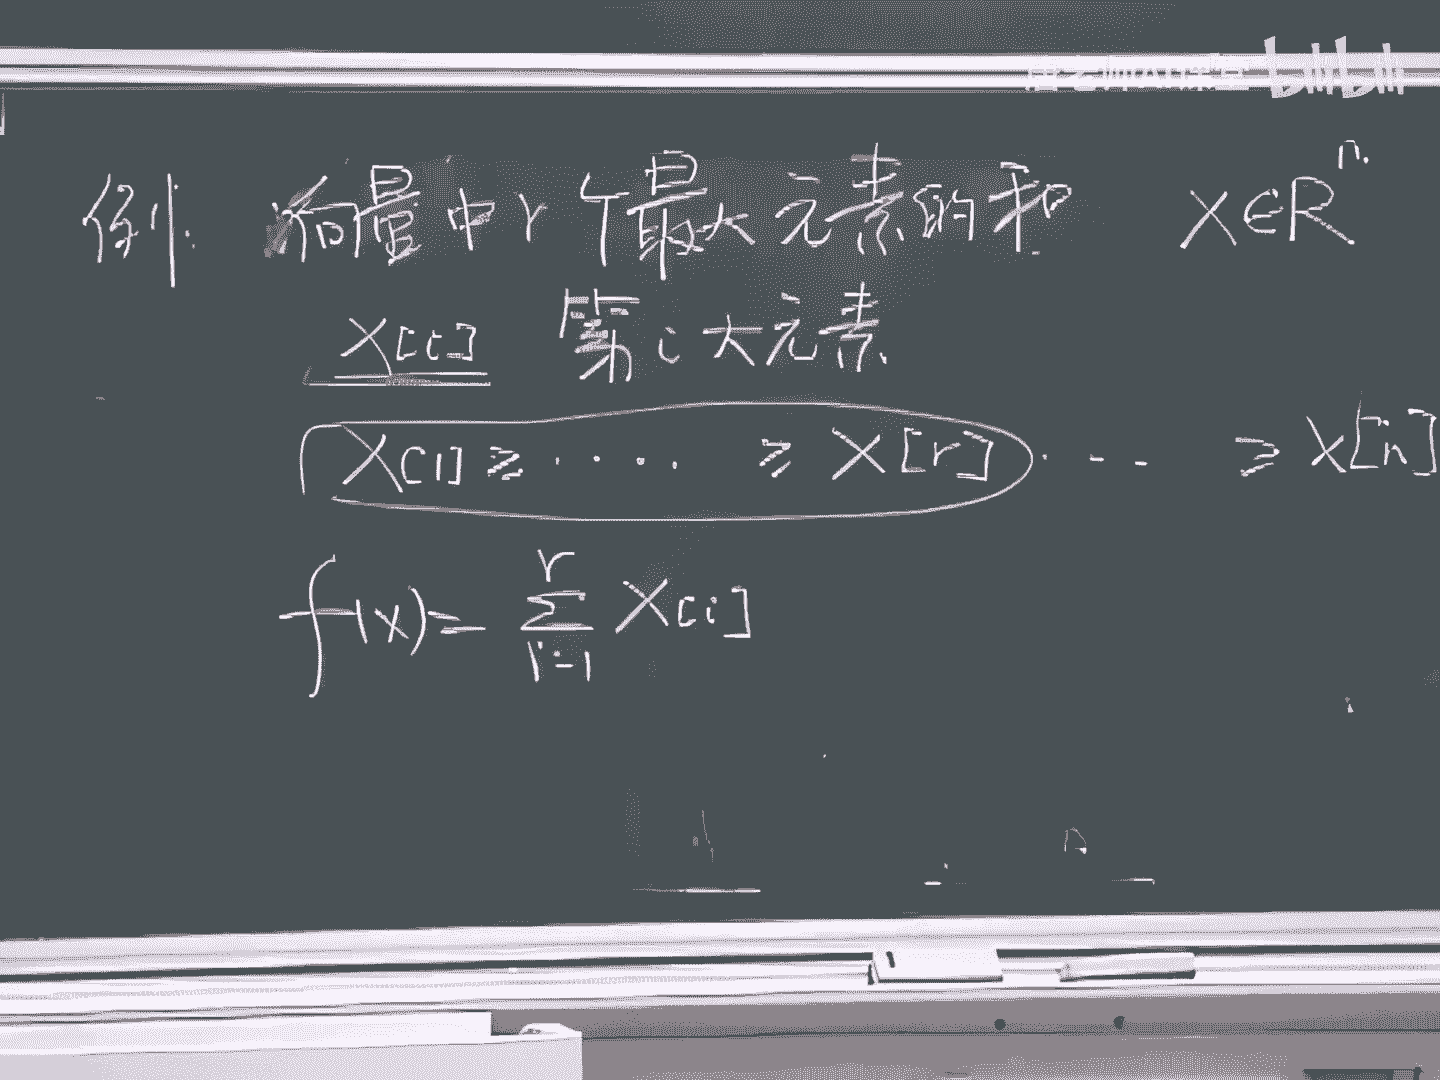 bilibili
例. 向量中r个最大元素的和 X∈Rⁿ.
X[i] 第i大元素.
X[1] ≥ ···· ≥ X[r] ··· ≥ X[n]
f(x)= Σ_{i=1}^{r} X[i]